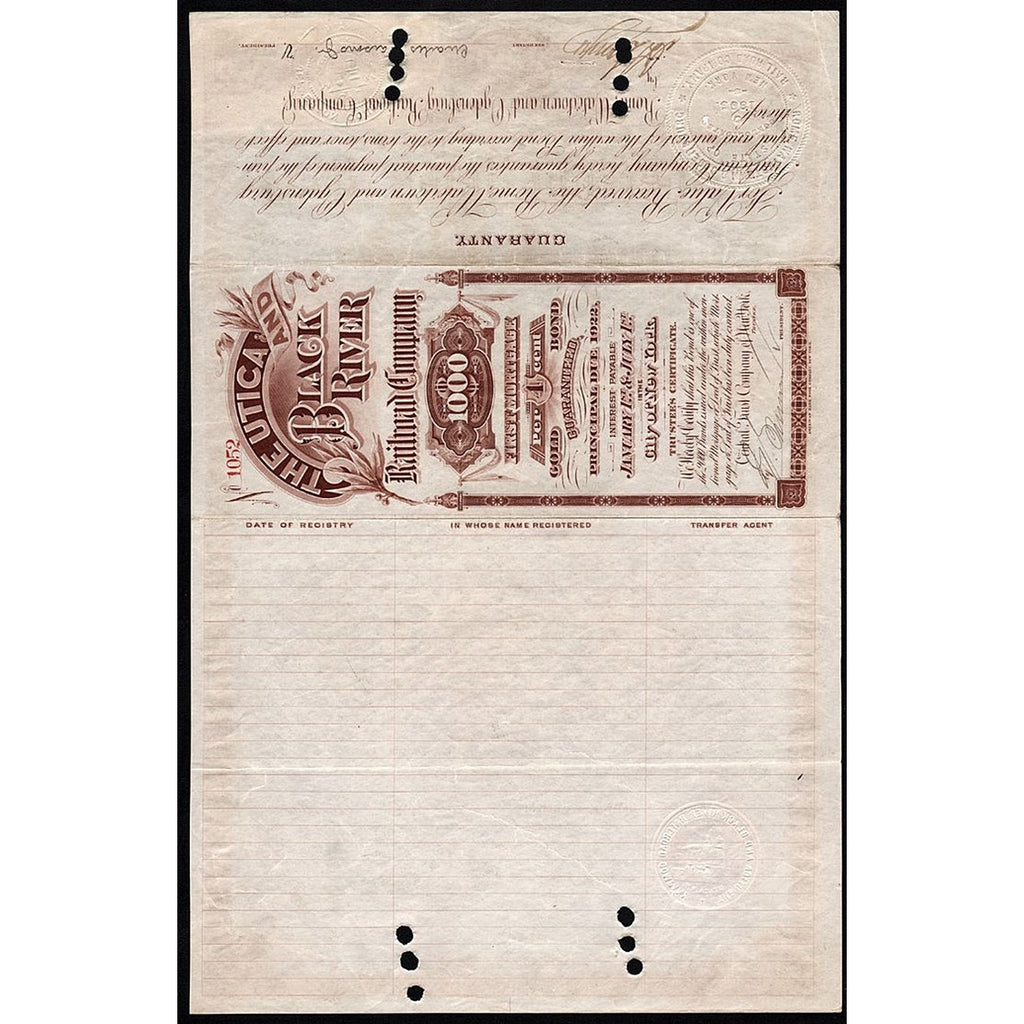 GUARANTY.
For Value Received, the Rome, Watertown and Ogdensburg
Railroad Company, hereby guarantees the punctual payment of the prin-
cipal and interest of the within Bond according to the terms, tenor and effect
thereof.
Rome, Watertown and Ogdensburg Railroad Company,
by
Charles Parsons Jr. V.
PRESIDENT.
SECRETARY.
No 1052
THE UTICA AND
BLACK
RIVER
Railroad Company
$1000
FIRST MORTGAGE
4 Per cent
GOLD BOND
GUARANTEED
PRINCIPAL DUE 1922,
INTEREST PAYABLE
JANUARY 1st & JULY 1st
IN THE
City OF New York
TRUSTEE'S CERTIFICATE.
We Hereby Certify that this Bond is one of
the 2000 Bonds issued under the within men-
tioned Mortgage or Deed of Trust, which Mort-
gage or Deed of Trust has been duly executed.
Central Trust Company of New York,
TRUSTEE.
by
V. PRESIDENT.
DATE OF REGISTRY
IN WHOSE NAME REGISTERED
TRANSFER AGENT